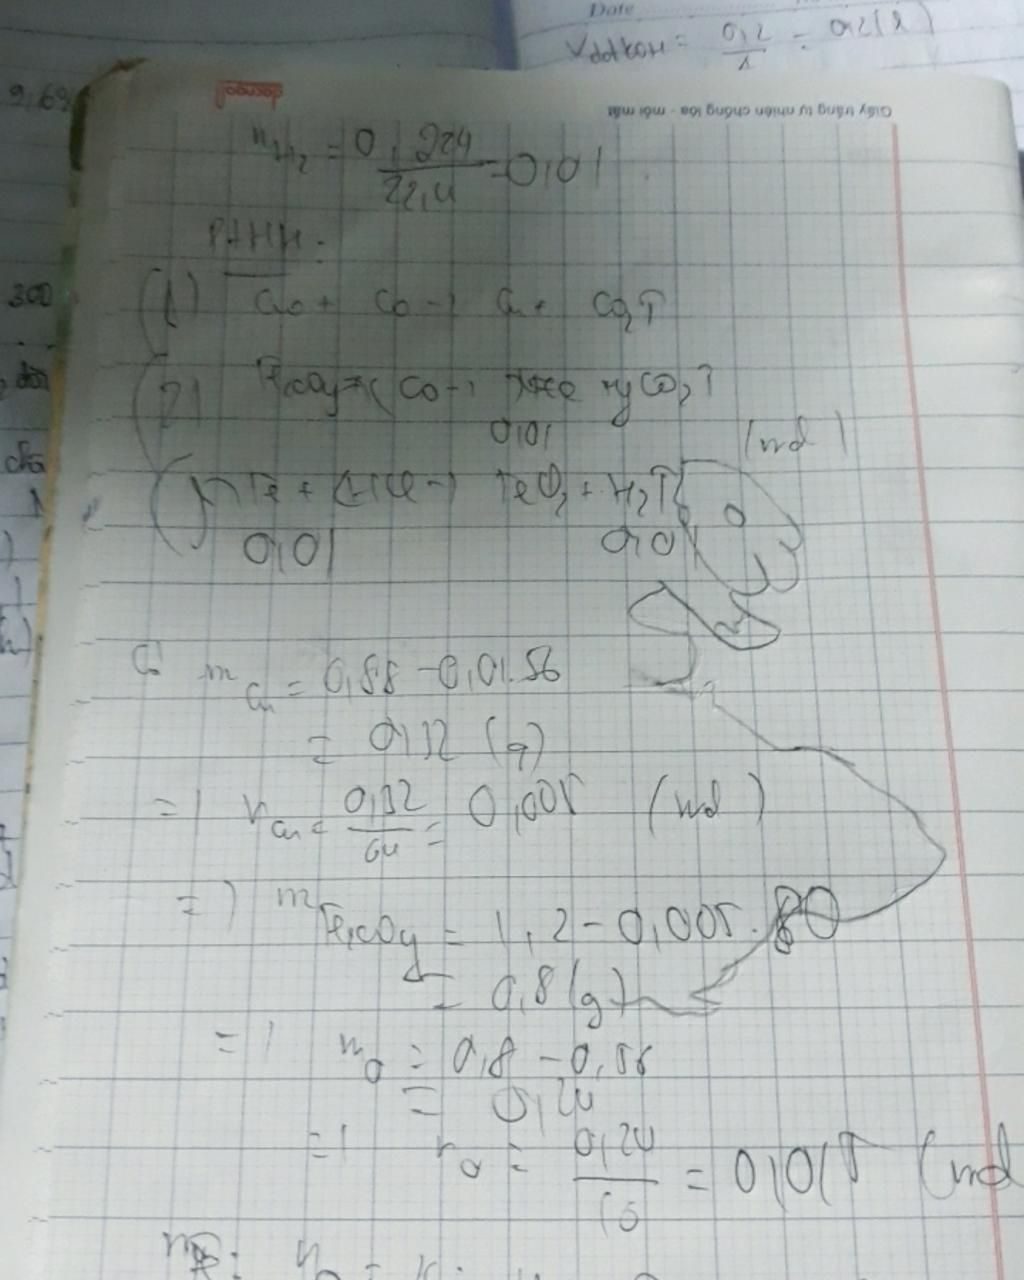 Date
VddKOH = 0,2/1 = 0,2(l)
9,69
Giấy trắng tự nhiên chống lóa - mỏi mắt
nH2 = 0,224/22,4 = 0,01
PTHH:
(1) CuO + CO → Cu + CO2↑
(2) FexOy + y CO → xFe + yCO2↑
0,01 (mol)
Fe + 2HCl → FeCl2 + H2↑
0,01 0,01
Có mCu = 0,88 - 0,01.56
= 0,32 (g)
=> nCu = 0,32/64 = 0,005 (mol)
=> mFexOy = 1,2 - 0,005.80
= 0,8 (g)
=> mO = 0,8 - 0,56
= 0,24
=> nO = 0,24/16 = 0,015 (mol
300